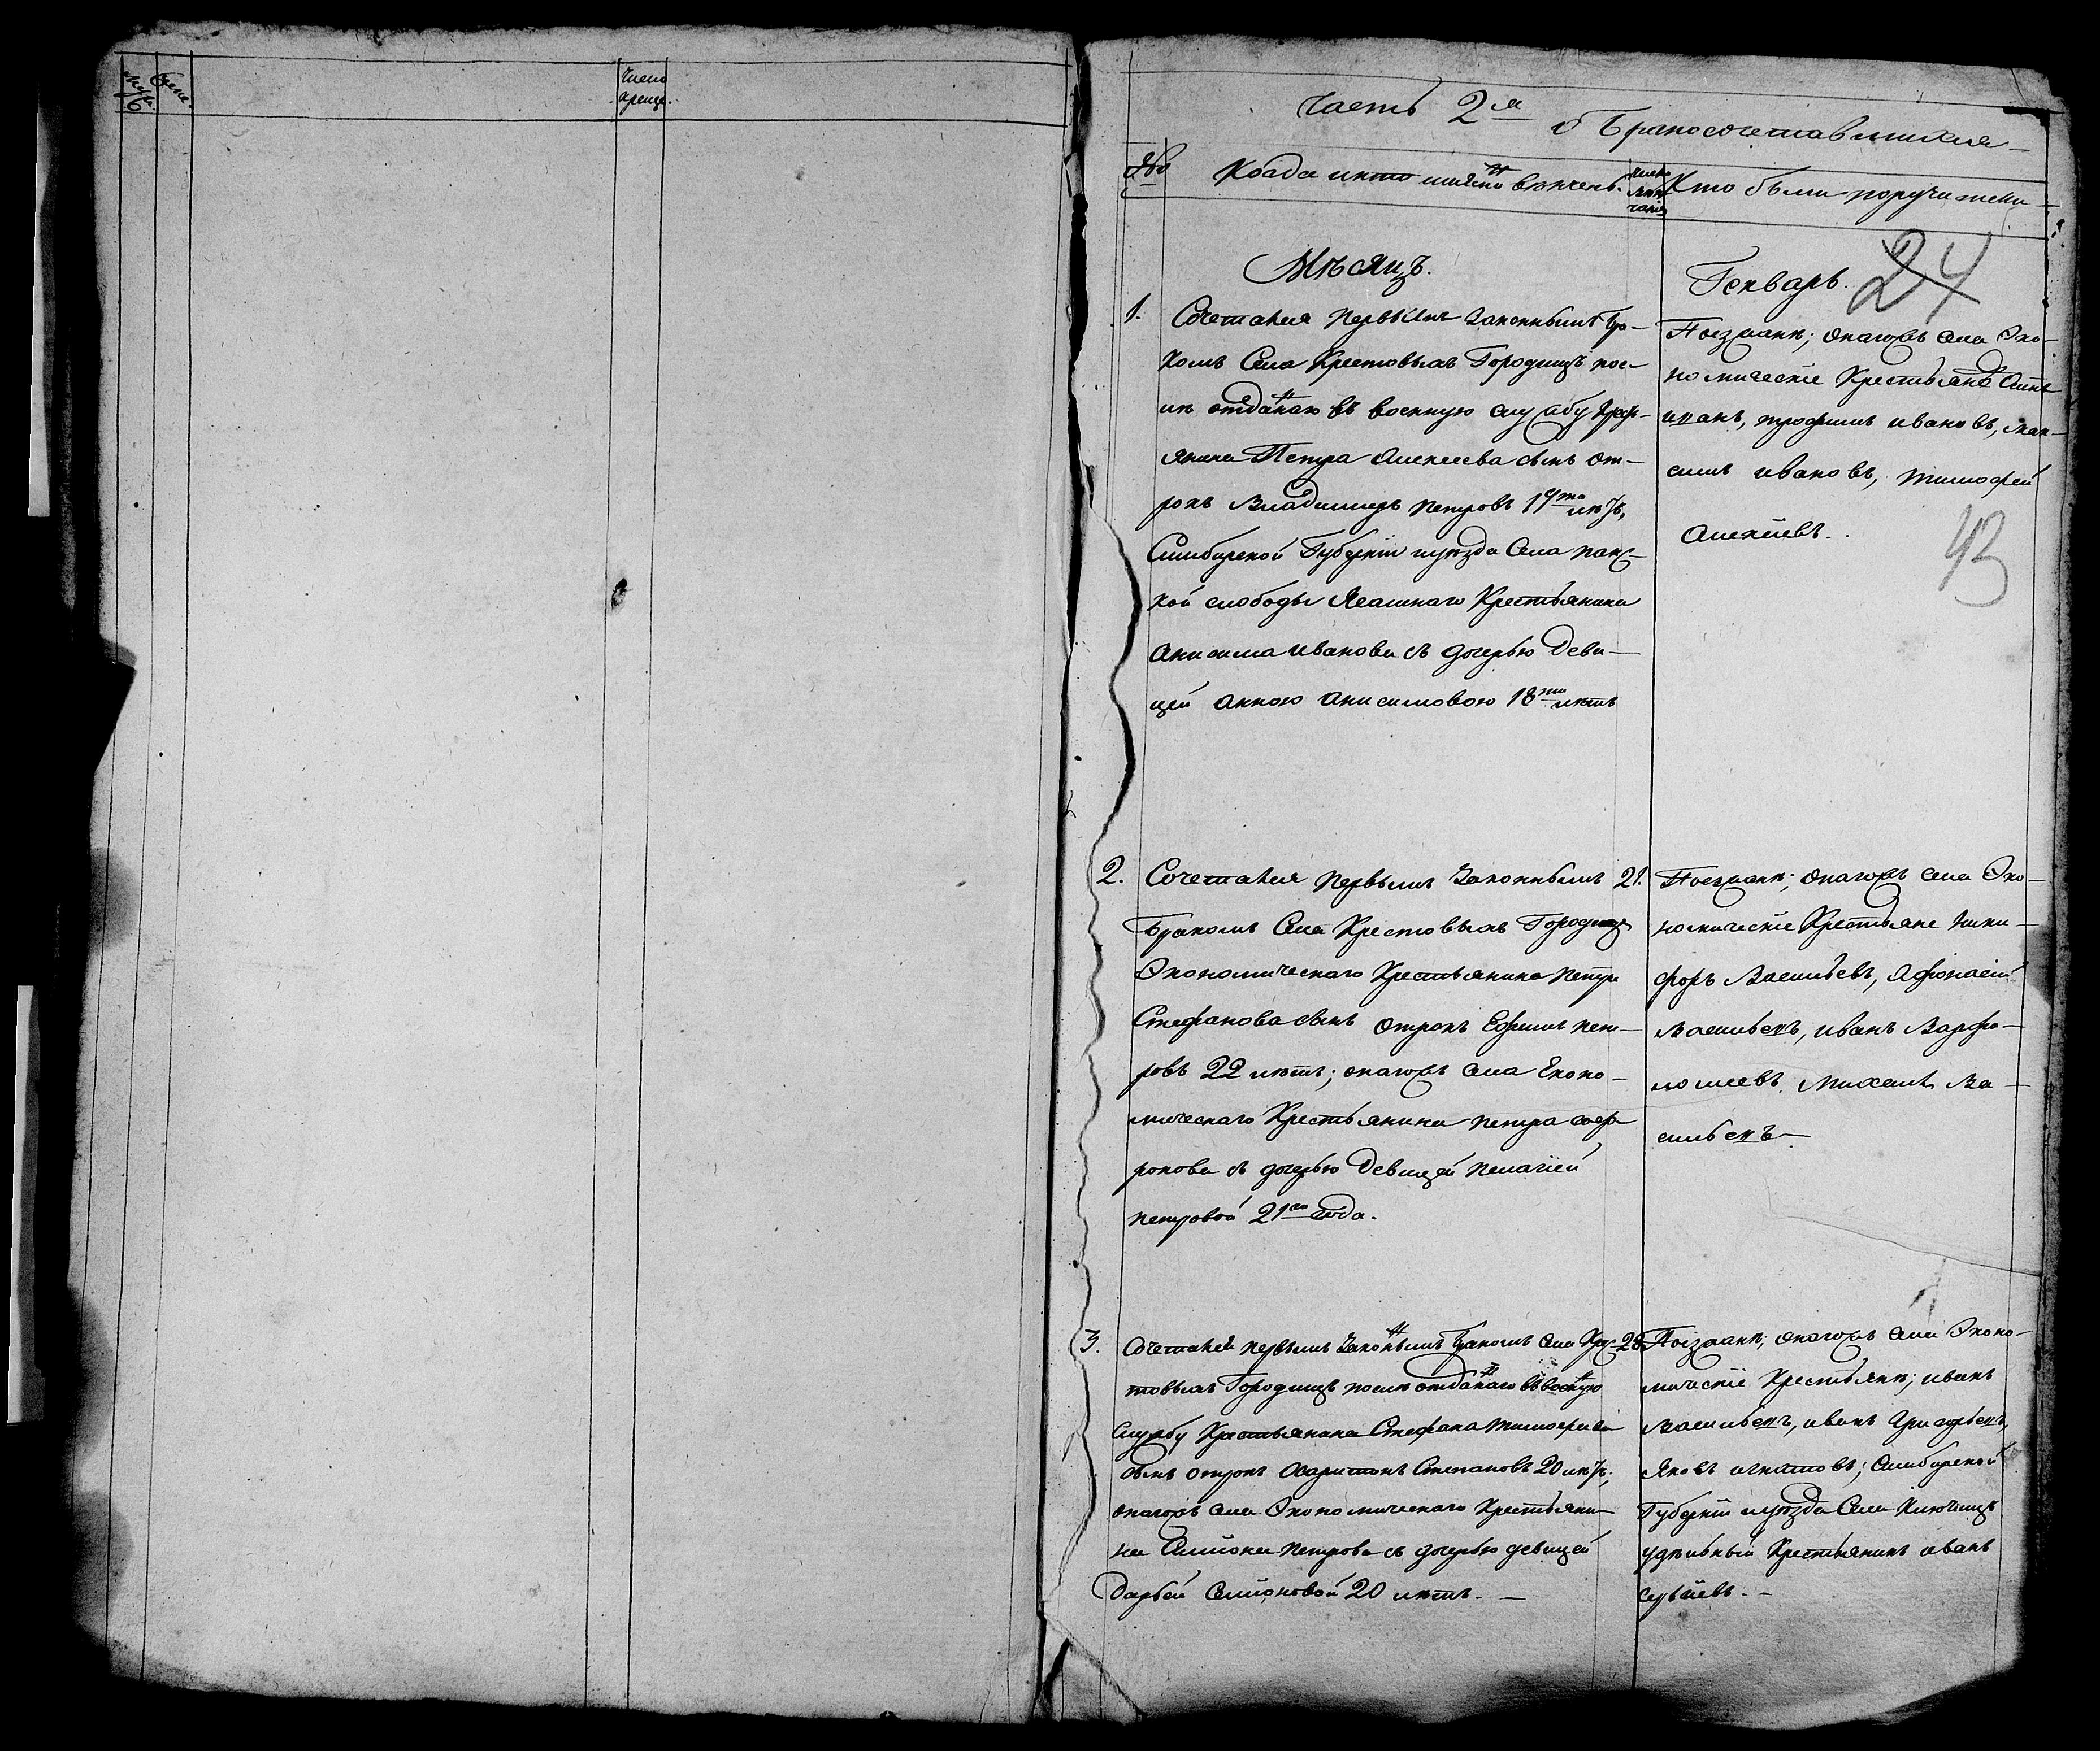 Муж.
Жене.
Число
креще.
Часть 2я о бракосочетавшихся
№
Когда и кто имянно венчены.
Кто были поручители
Мѣсяцъ.
Генварь.
24
1. Сочетался первымъ законнымъ бра-
комъ Села Крестовыхъ Городищъ пос-
лѣ отданаго въ военную службу крес-
янина Петра Алексеева сынъ от-
рокъ Владимиръ петровъ 19ти лѣтъ,
Симбирской Губернии уѣзда Села
кой слободы Ясашнаго Крестьянина
анисима иванова съ дочерью Деви-
цей анною анисимовою 18ти лѣтъ
Поезжанѣ; онагожъ села Эко-
номическіе Крестьянѣ
трофимъ ивановъ, мак-
симъ ивановъ, тимофей
Алексіевъ.
43
2. Сочетался первымъ Законнымъ 21.
Бракомъ Села Крестовыхъ Городищъ
Экономическаго Крестьянина петра
Стефанова сынъ отрокъ Ефимъ пет-
ровъ 22 лѣтъ; онагожъ села Еконо-
мическаго Крестьянина петра соф-
ронова съ дочерью Девицей пелагіей
петровой 21го года.
Поезжанѣ; онагожъ села Эко-
номическіе Крестьяне ники-
форъ Васильевъ, Афонасій
Васильевъ, иванъ Варфо-
ломеевъ, Михаилъ Ва-
сильевъ.
3. Сочетался первымъ законнымъ бракомъ села Крес- 28
товыхъ Городищъ послѣ отданаго въ военую
службу Крестьянина Стефана тимофеева
сынъ отрокъ Харитонъ Степановъ 20 лѣтъ;
онагожъ села Экономическаго Крестьяни-
на Симіона петрова съ дочерью девицей
дарьей Симіоновой 20 лѣтъ.
Поезжанѣ; онагожъ села Эконо-
мическіе Крестьянѣ; иванъ
Васильевъ, иванъ Григорьевъ,
Яковъ игнатовъ; Симбирской
Губерніи уѣзда Села Ключищъ
удѣльный Крестьянинъ иванъ
Сергѣевъ.